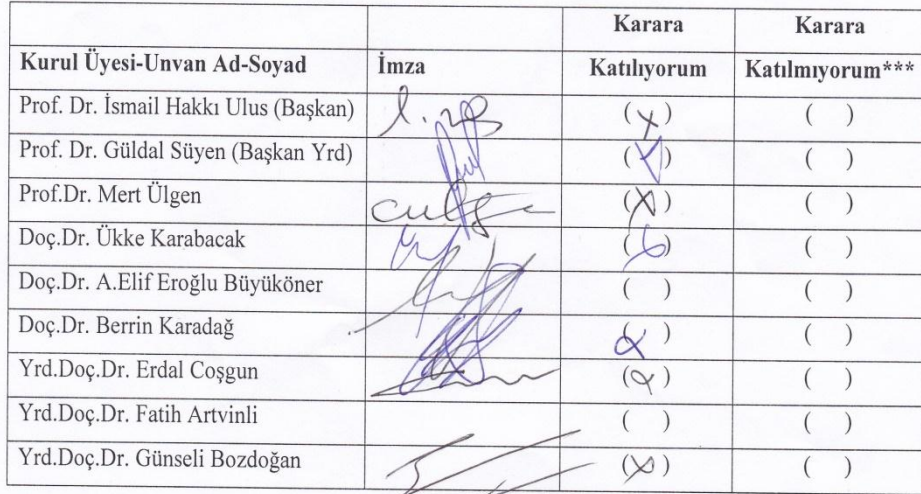 Karara Karara
Kurul Üyesi-Unvan Ad-Soyad İmza Katılıyorum Katılmıyorum***
Prof. Dr. İsmail Hakkı Ulus (Başkan) (X) ( )
Prof. Dr. Güldal Süyen (Başkan Yrd) ( ) ( )
Prof.Dr. Mert Ülgen (X) ( )
Doç.Dr. Ükke Karabacak ( ) ( )
Doç.Dr. A.Elif Eroğlu Büyüköner ( ) ( )
Doç.Dr. Berrin Karadağ ( ) ( )
Yrd.Doç.Dr. Erdal Coşgun (X) ( )
Yrd.Doç.Dr. Fatih Artvinli ( ) ( )
Yrd.Doç.Dr. Günseli Bozdoğan (X) ( )